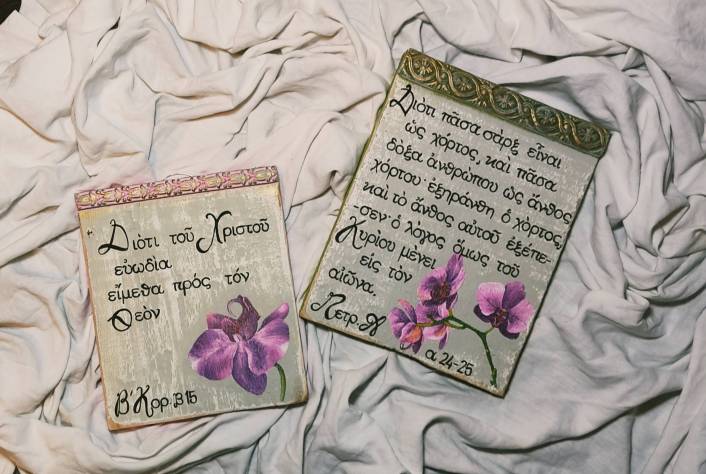 Διότι τοῦ Χριστοῦ
εὐωδία
εἴμεθα πρός τόν
Θεὸν
Β' Κορ. Β 15
Διότι πᾶσα σὰρξ εἶναι
ὡς χόρτος, καὶ πᾶσα
δόξα ἀνθρώπου ὡς ἄνθος
χόρτου· ἐξηράνθη ὁ χόρτος,
καὶ τὸ ἄνθος αὐτοῦ ἐξέπε-
-σεν· ὁ λόγος ὅμως τοῦ
Κυρίου μένει
εἰς τὸν
αἰῶνα.
Πετρ. Α
α 24-25